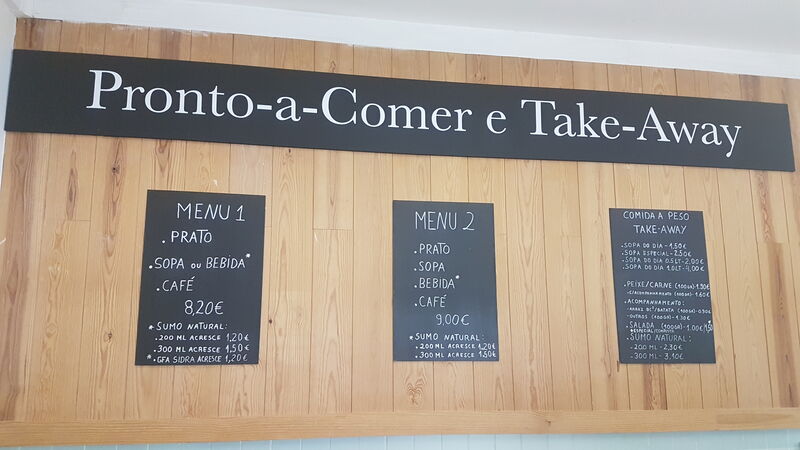 Pronto-a-Comer e Take-Away
MENU 1
. PRATO
. SOPA OU BEBIDA*
. CAFÉ
8,20€
* SUMO NATURAL:
. 200 ML ACRESCE 1,20€
. 300 ML ACRESCE 1,50€
* . GFA SIDRA ACRESCE 1,20€
MENU 2
. PRATO
. SOPA
. BEBIDA*
. CAFÉ
9,00€
* SUMO NATURAL:
. 200 ML ACRESCE 1,20€
. 300 ML ACRESCE 1,50€
COMIDA A PESO
TAKE-AWAY
. SOPA DO DIA - 1,50€
. SOPA ESPECIAL - 2,50€
. SOPA DO DIA 0.5LT - 2,00€
. SOPA DO DIA 1.0LT - 4,00€
. PEIXE/CARNE (100GR) - 1.90€
- C/ACOMPANHAMENTO (100GR) - 1.60€
. ACOMPANHAMENTO:
/BATATA (100GR) - 0.90€
- OUTROS (100GR) - 1.30€
. SALADA (100GR) - 1.00€
. SUMO NATURAL:
- 200 ML - 2,30€
- 300 ML - 3,10€